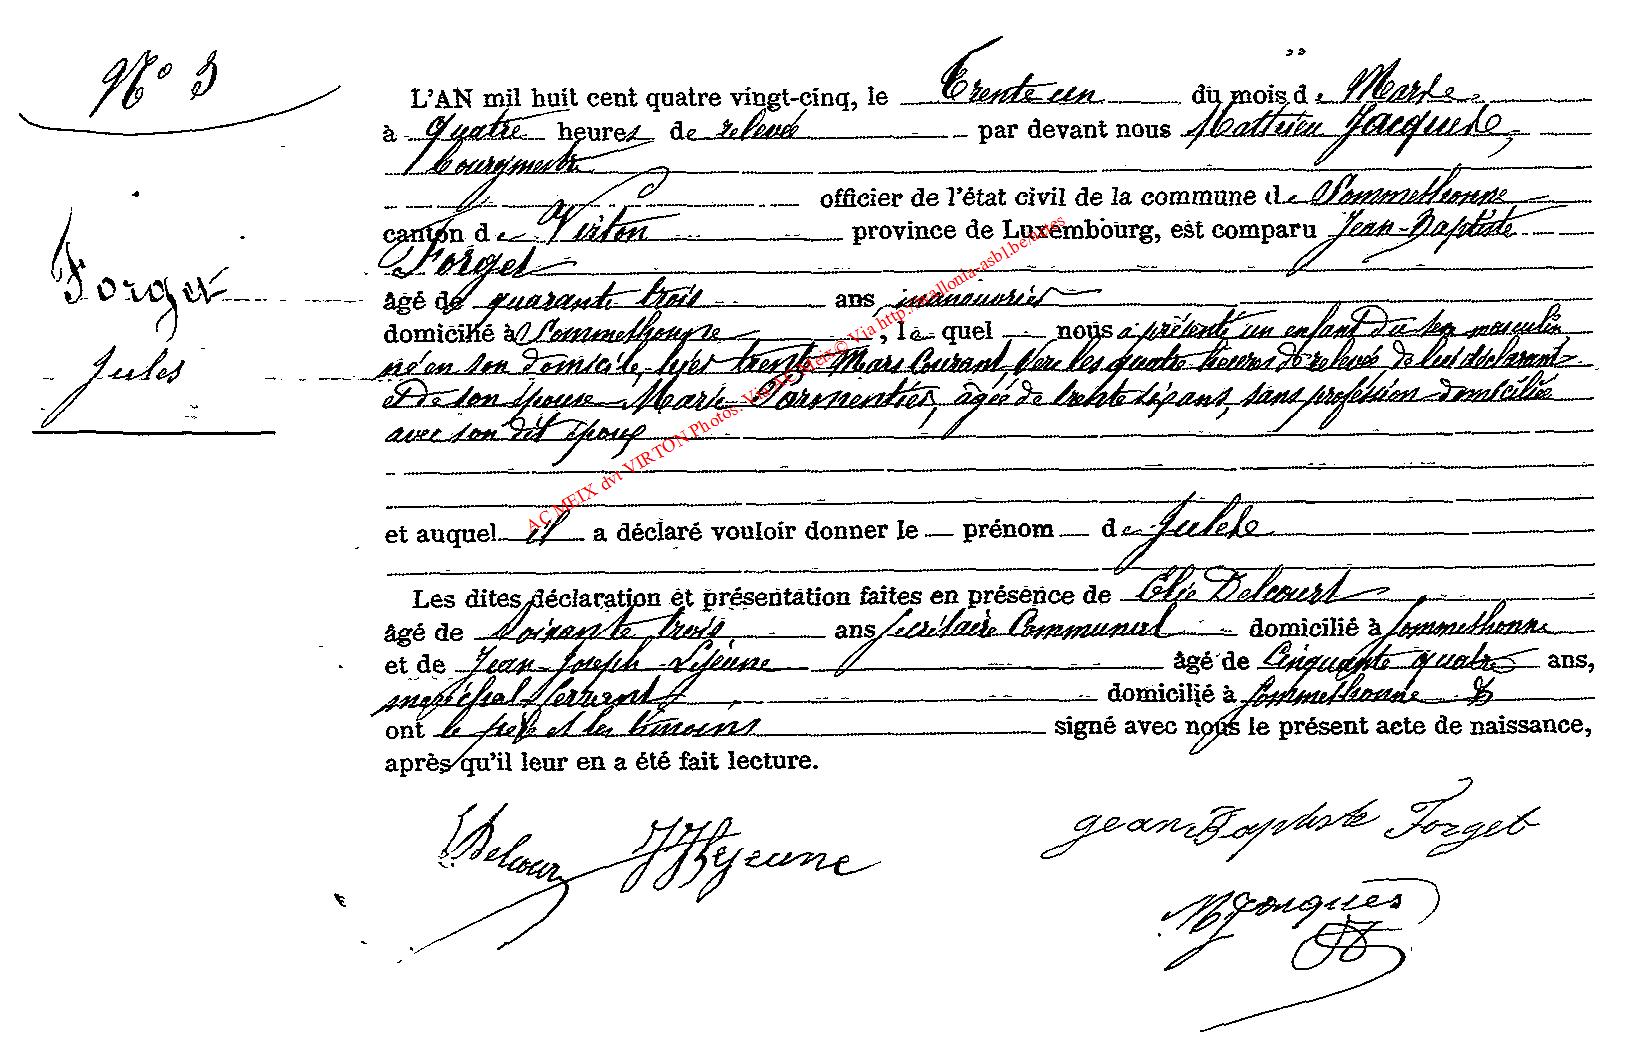 N° 3
Forget
Jules
L'AN mil huit cent quatre vingt-cinq, le Trente un du mois de Mars
à quatre heures de relevée par devant nous Mathieu Jacques,
bourgmestre
officier de l'état civil de la commune de Sommethonne
canton de Virton province de Luxembourg, est comparu Jean-Baptiste
Forget
âgé de quarante trois ans, manouvrier
domicilié à Sommethonne, le quel nous a présenté un enfant du sexe masculin
né en son domicile, hier trente Mars Courant, vers les quatre heures de relevée, de lui déclarant
et de son épouse Marie Parmentier, âgée de trente six ans, sans profession domiciliée
avec son dit époux
et auquel il a déclaré vouloir donner le prénom de Jules
Les dites déclaration et présentation faites en présence de Elie Delcourt
âgé de soixante trois ans Secrétaire Communal domicilié à Sommethonne
et de Jean-Joseph Lejeune âgé de Cinquante quatre ans,
maréchal ferrant domicilié à Sommethonne &
ont le père et les témoins signé avec nous le présent acte de naissance,
après qu'il leur en a été fait lecture.
E Delcour JJ Lejeune jean Baptiste Forget
M Jacques
AC MEIX dvt VIRTON Photos: © Via http://wallonia-asbl.be/actes